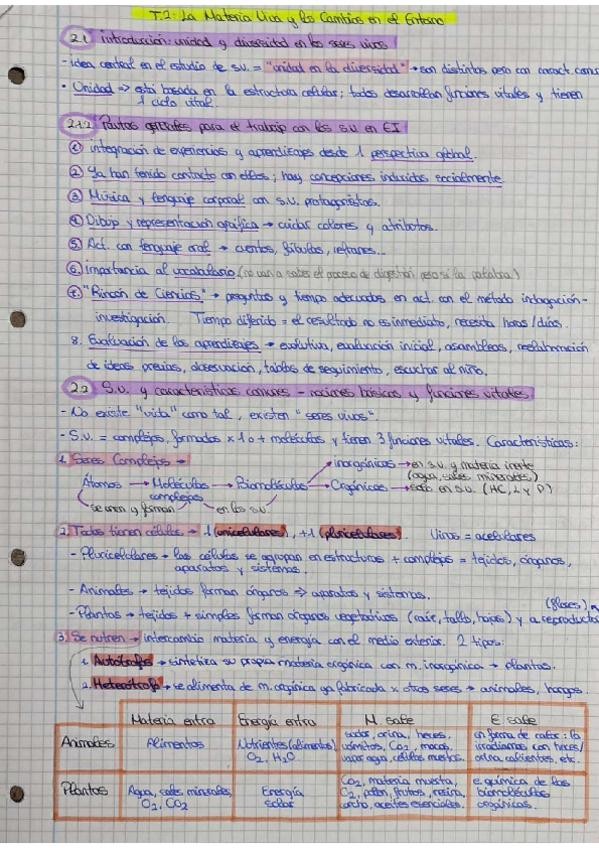 T.2: La Materia Viva y los Cambios en el Entorno
2.1 introducción: unidad y diversidad en los seres vivos
- idea central en el estudio de s.v. = "unidad en la diversidad" → son distintos pero con caract. comu
• Unidad => está basada en la estructura celular; todos desarrollan funciones vitales y tienen
1 ciclo vital.
2.1.2 Pautas generales para el trabajo con los s.v en EI
① integración de experiencias y aprendizajes desde 1 perspectiva global.
② Ya han tenido contacto con ellos; hay concepciones inducidas socialmente
③ Música y lenguaje corporal con s.v. protagonistas.
④ Dibujo y representación gráfica → cuidar colores y atributos.
⑤ Act. con lenguaje oral → cuentos, fábulas, refranes...
⑥ importancia al vocabulario (no van a saber el proceso de digestión pero sí la palabra)
⑦ "Rincón de Ciencias" → preguntas y tiempo adecuados en act. con el método indagación-
investigación. Tiempo diferido = el resultado no es inmediato, necesita horas/días.
8. Evaluación de los aprendizajes → evolutiva, evaluación inicial, asambleas, reelaboración
de ideas previas, observación, tablas de seguimiento, escuchar al niño.
2.2 S.v. y características comunes - nociones básicas y funciones vitales
- No existe "vida" como tal, existen "seres vivos".
- S.v. = complejos, formados x 1 o + moléculas y tienen 3 funciones vitales. Características:
1. Seres Complejos →
inorgánicos → en s.v. y materia inerte
(agua, sales minerales)
Átomos → Moléculas → Biomoléculas → Orgánicas → solo en s.v. (HC, L y P)
complejas
se unen y forman en los s.v.
2. Todos tienen células → 1 (unicelulares), +1 (pluricelulares). Virus = acelulares
- Pluricelulares → las células se agrupan en estructuras + complejas = tejidos, órganos,
aparatos y sistemas.
- Animales → tejidos forman órganos => aparatos y sistemas.
(flores)
- Plantas → tejidos + simples forman órganos vegetativos (raíz, tallo, hojas) y a reproductor
3. Se nutren → intercambio materia y energía con el medio exterior. 2 tipos:
1. Autótrofa → sintetiza su propia materia orgánica con m. inorgánica → plantas.
2. Heterótrofa → se alimenta de m. orgánica ya fabricada x otros seres → animales, hongos.
Materia entra Energía entra M. sale E sale
Animales Alimentos Nutrientes (alimentos) O2, H2O sudor, orina, heces, vómitos, CO2, mocos, vapor agua, células muertas. en forma de calor: la irradiamos con heces/ orina calientes, etc.
Plantas Agua, sales minerales, O2, CO2 Energía solar CO2, materia muerta, O2, polen, frutos, resina, corcho, aceites esenciales. e. química de las biomoléculas orgánicas.